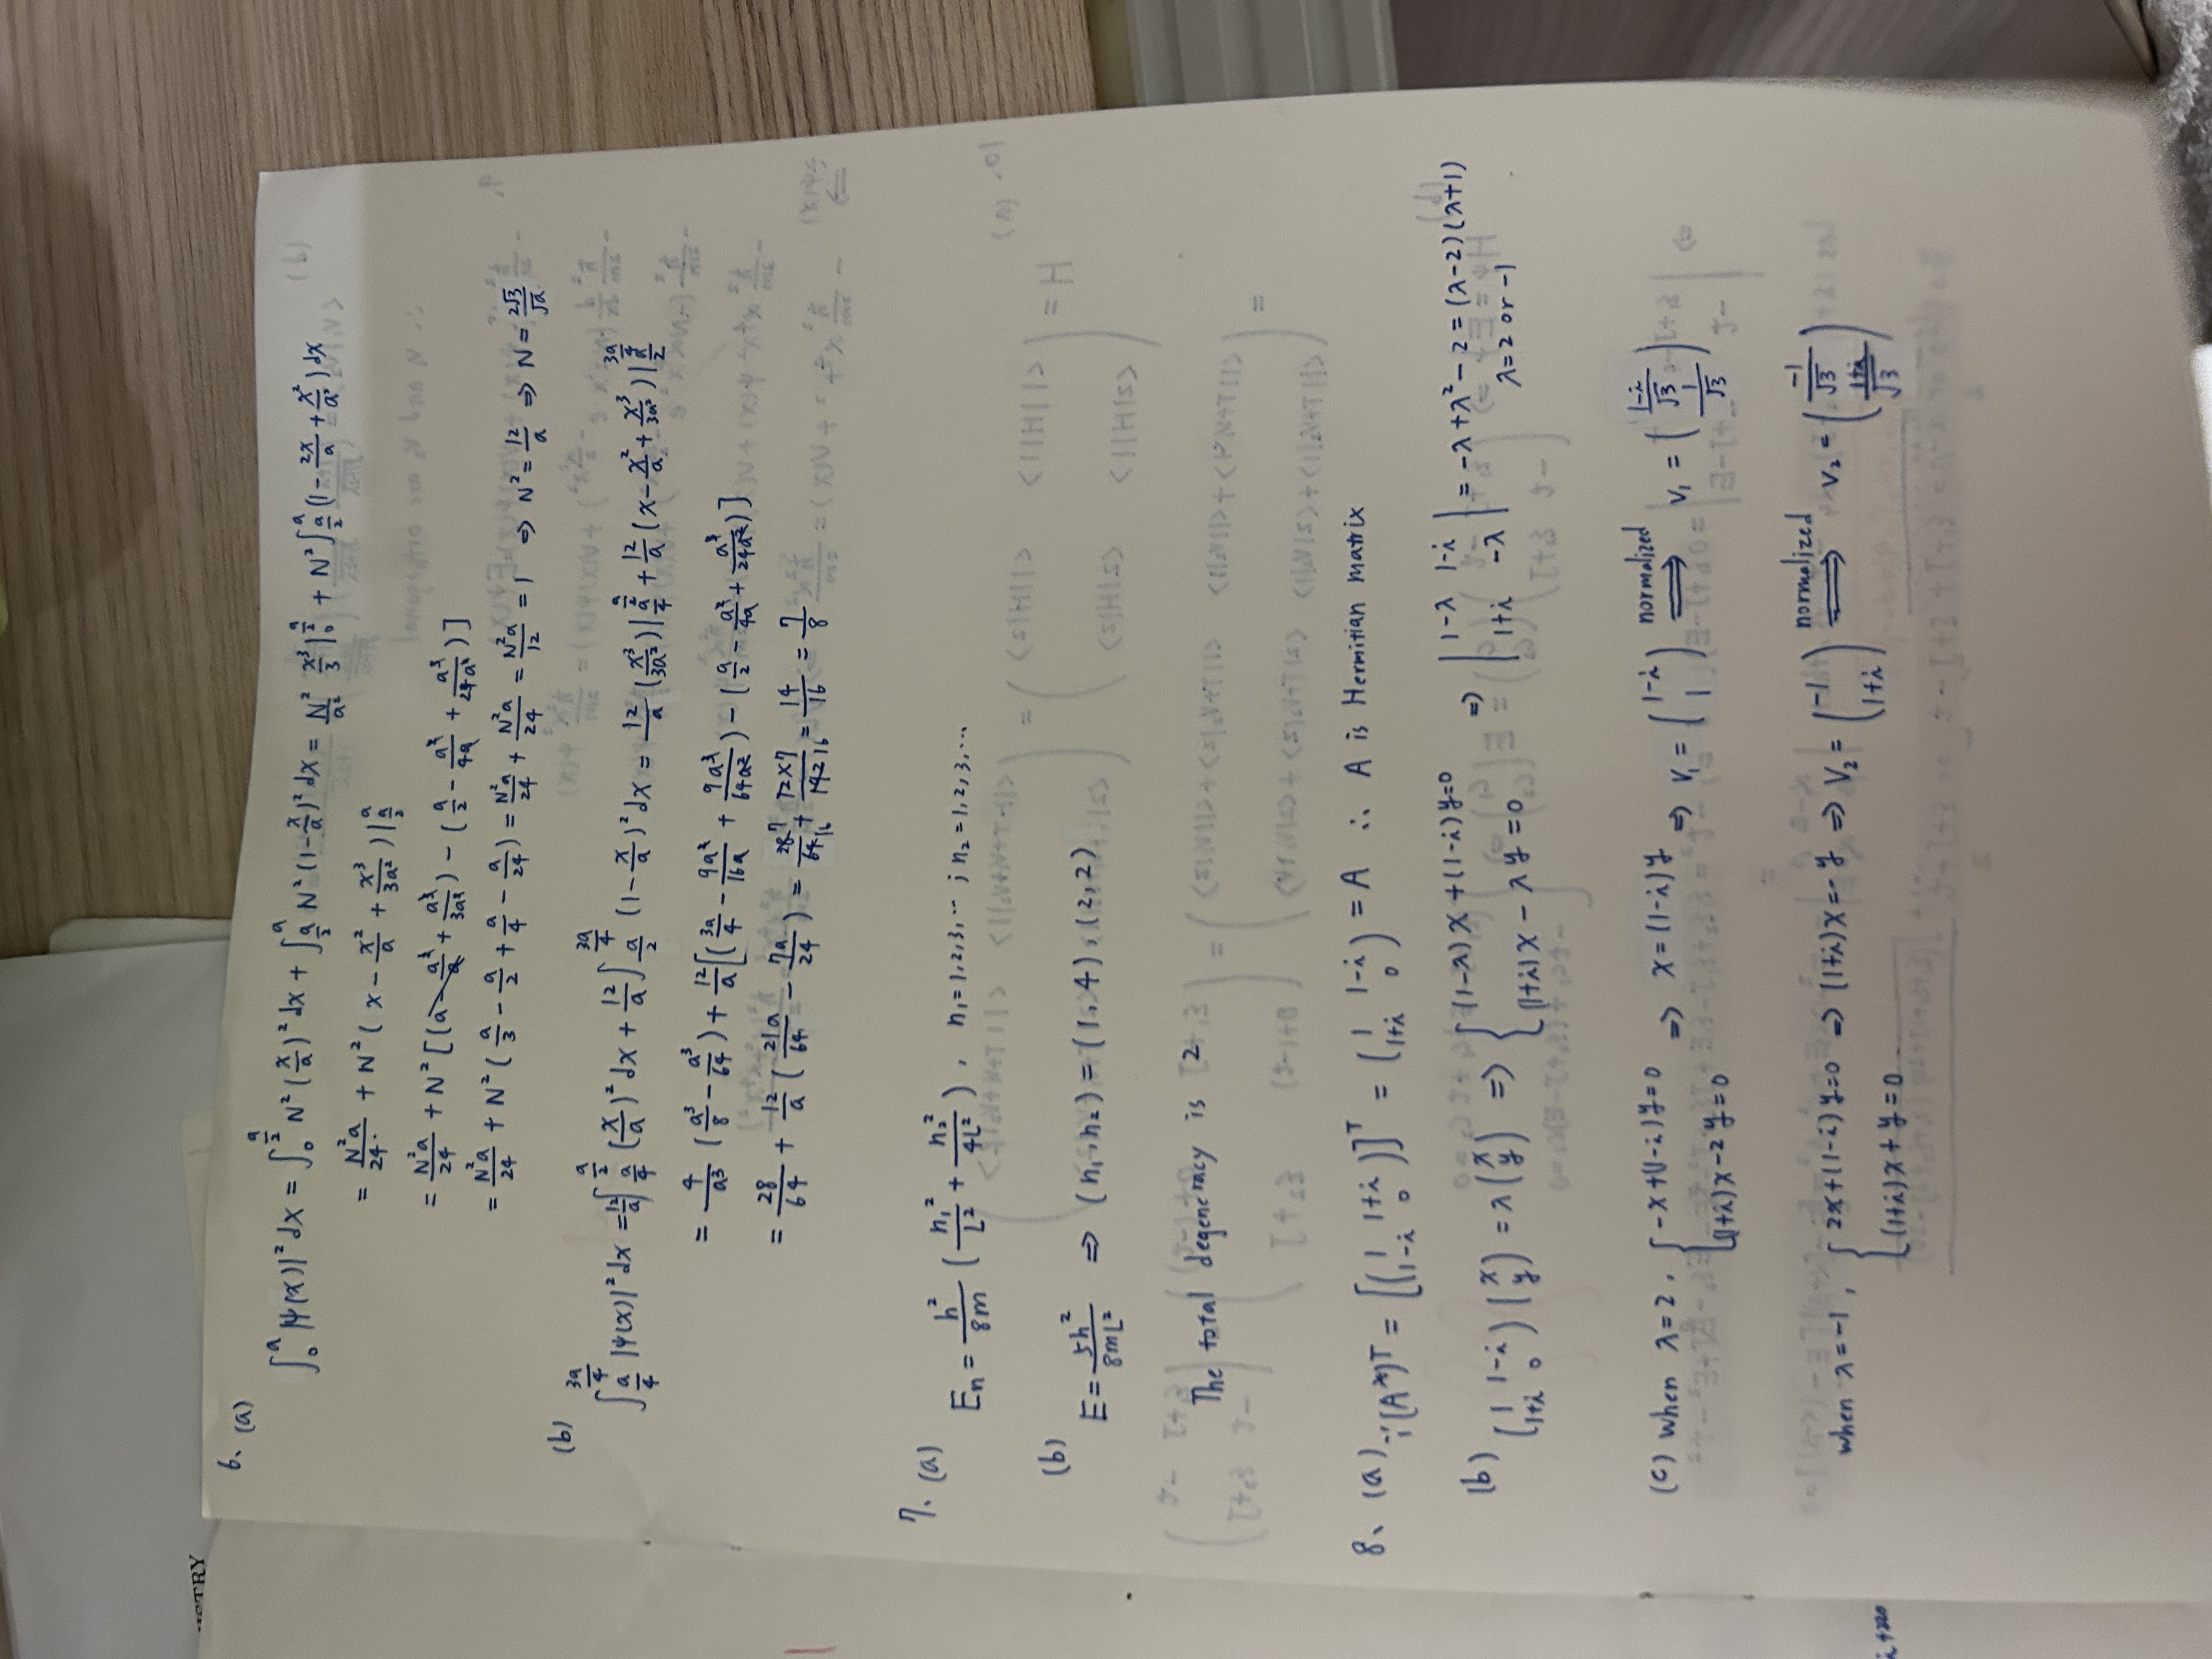 STRY
6、(a)
∫_0^a |ψ(x)|² dx = ∫_0^{a/2} N² (x/a)² dx + ∫_{a/2}^a N² (1-x/a)² dx = N²/a² x³/3 |_0^{a/2} + N² ∫_{a/2}^a (1 - 2x/a + x²/a²) dx
= N²a/24 + N² ( x - x²/a + x³/3a² ) |_{a/2}^a
= N²a/24 + N² [ (a - a²/a + a³/3a²) - (a/2 - a²/4a + a³/24a²) ]
= N²a/24 + N² ( a/3 - a/2 + a/4 - a/24 ) = N²a/24 + N²a/24 = N²a/12 = 1 ⇒ N² = 12/a ⇒ N = 2√3/√a
(b)
∫_{a/4}^{3a/4} |ψ(x)|² dx = 12/a ∫_{a/4}^{a/2} (x/a)² dx + 12/a ∫_{a/2}^{3a/4} (1-x/a)² dx = 12/a (x³/3a²) |_{a/4}^{a/2} + 12/a (x - x²/a + x³/3a²) |_{a/2}^{3a/4}
= 4/a³ (a³/8 - a³/64) + 12/a [ (3a/4 - 9a²/16a + 9a³/64a²) - (a/2 - a²/4a + a³/24a²) ]
= 28/64 + 12/a ( 21a/64 - 7a/24 ) = 28 7/64 16 + 12×7/192 16 = 14/16 = 7/8
7. (a)
E_n = h²/8m ( n₁²/L² + n₂²/4L² ) , n₁=1,2,3,… ; n₂=1,2,3,…
(b)
E = 5h²/8mL² ⇒ (n₁,n₂) = (1,4), (2,2)
The total degeneracy is 2
8、(a) ∵ (A*)^T = [(1 1+i; 1-i 0)]^T = (1 1-i; 1+i 0) = A ∴ A is Hermitian matrix
(b) (1 1-i; 1+i 0) (x; y) = λ (x; y) ⇒ { (1-λ)x + (1-i)y=0; (1+i)x - λy=0 ⇒ |1-λ 1-i; 1+i -λ| = -λ+λ²-2 = (λ-2)(λ+1)
λ=2 or -1
(c) when λ=2, { -x+(1-i)y=0; (1+i)x-2y=0 ⇒ x=(1-i)y ⇒ V₁ = (1-i; 1) normalized ⟹ V₁ = ((1-i)/√3; 1/√3)
when λ=-1, { 2x+(1-i)y=0; (1+i)x+y=0 ⇒ (1+i)x=-y ⇒ V₂ = (-1; 1+i) normalized ⟹ V₂ = (-1/√3; (1+i)/√3)